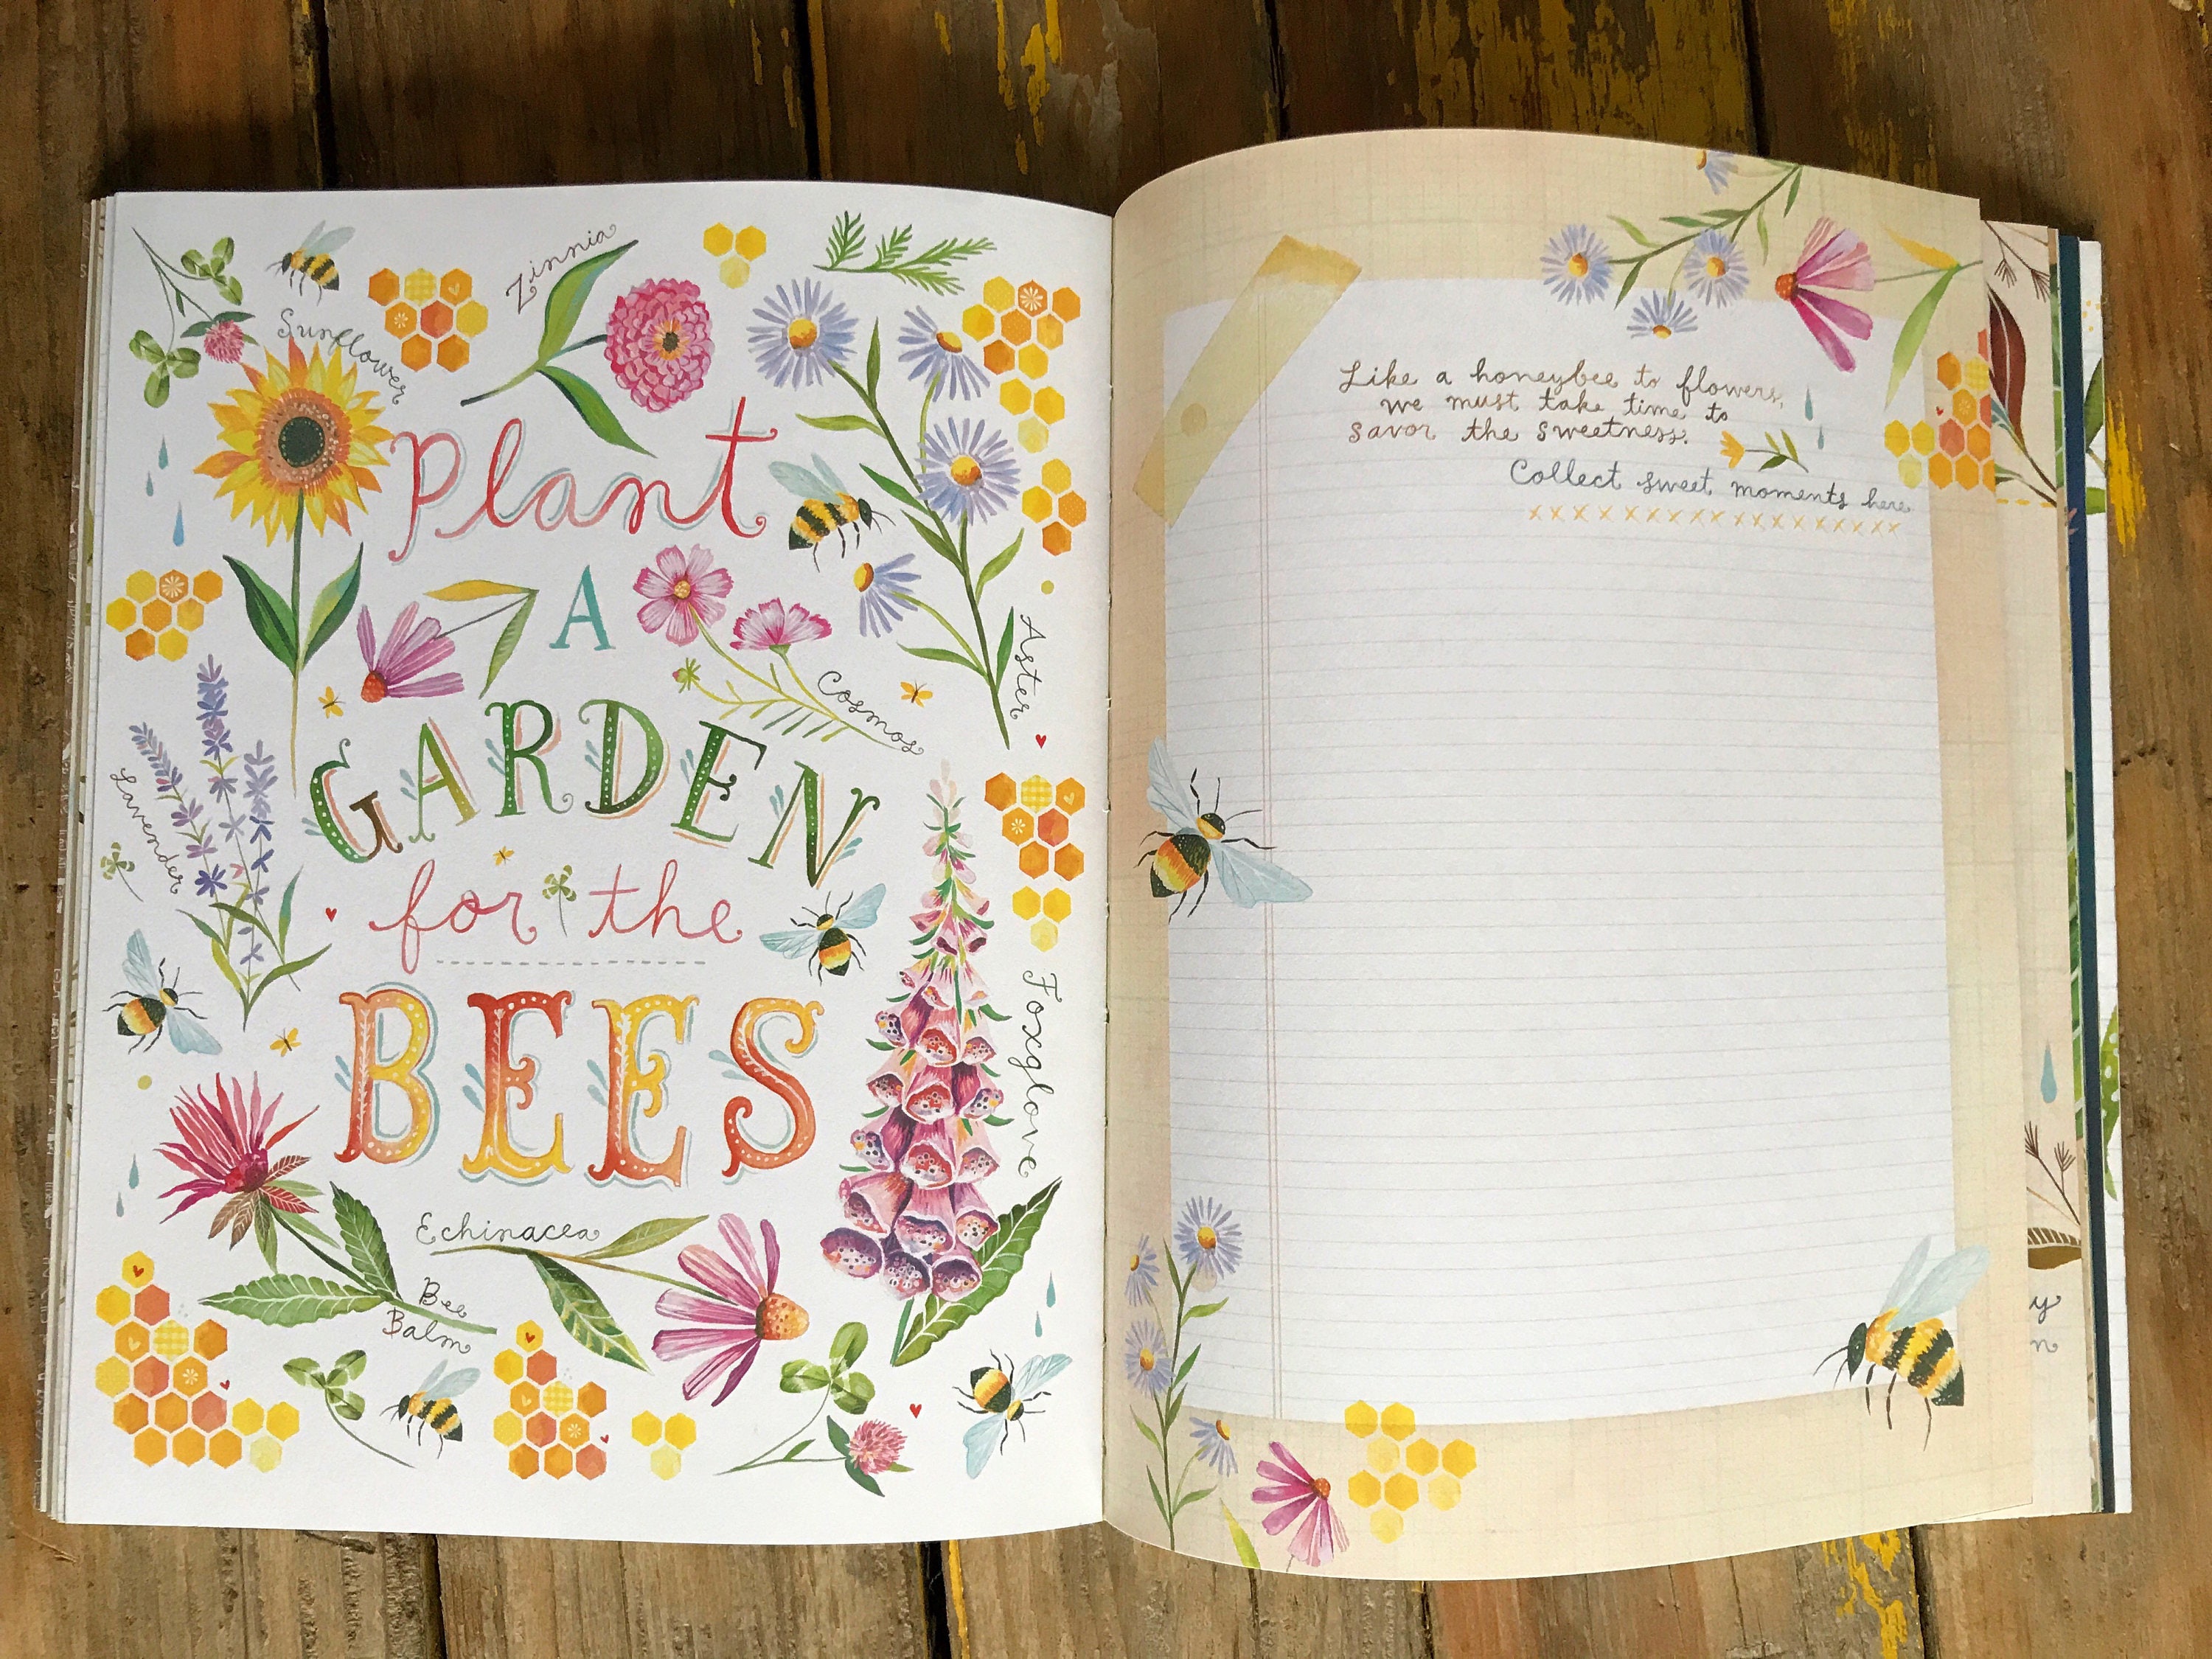 Zinnia
Sunflower
Plant
A
Aster
Cosmos
GARDEN
Lavender
for the
BEES
Foxglove
Echinacea
Bee
Balm
Like a honeybee to flowers,
we must take time to
savor the sweetness.
Collect sweet moments here
xxxxxxxxxxxxxxxxxx
y
n